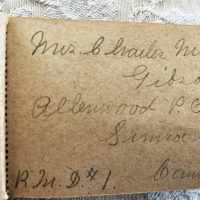 Mrs Charles M
Gibso
Allenwood P.O
Simco
R.M.D. #1. Can